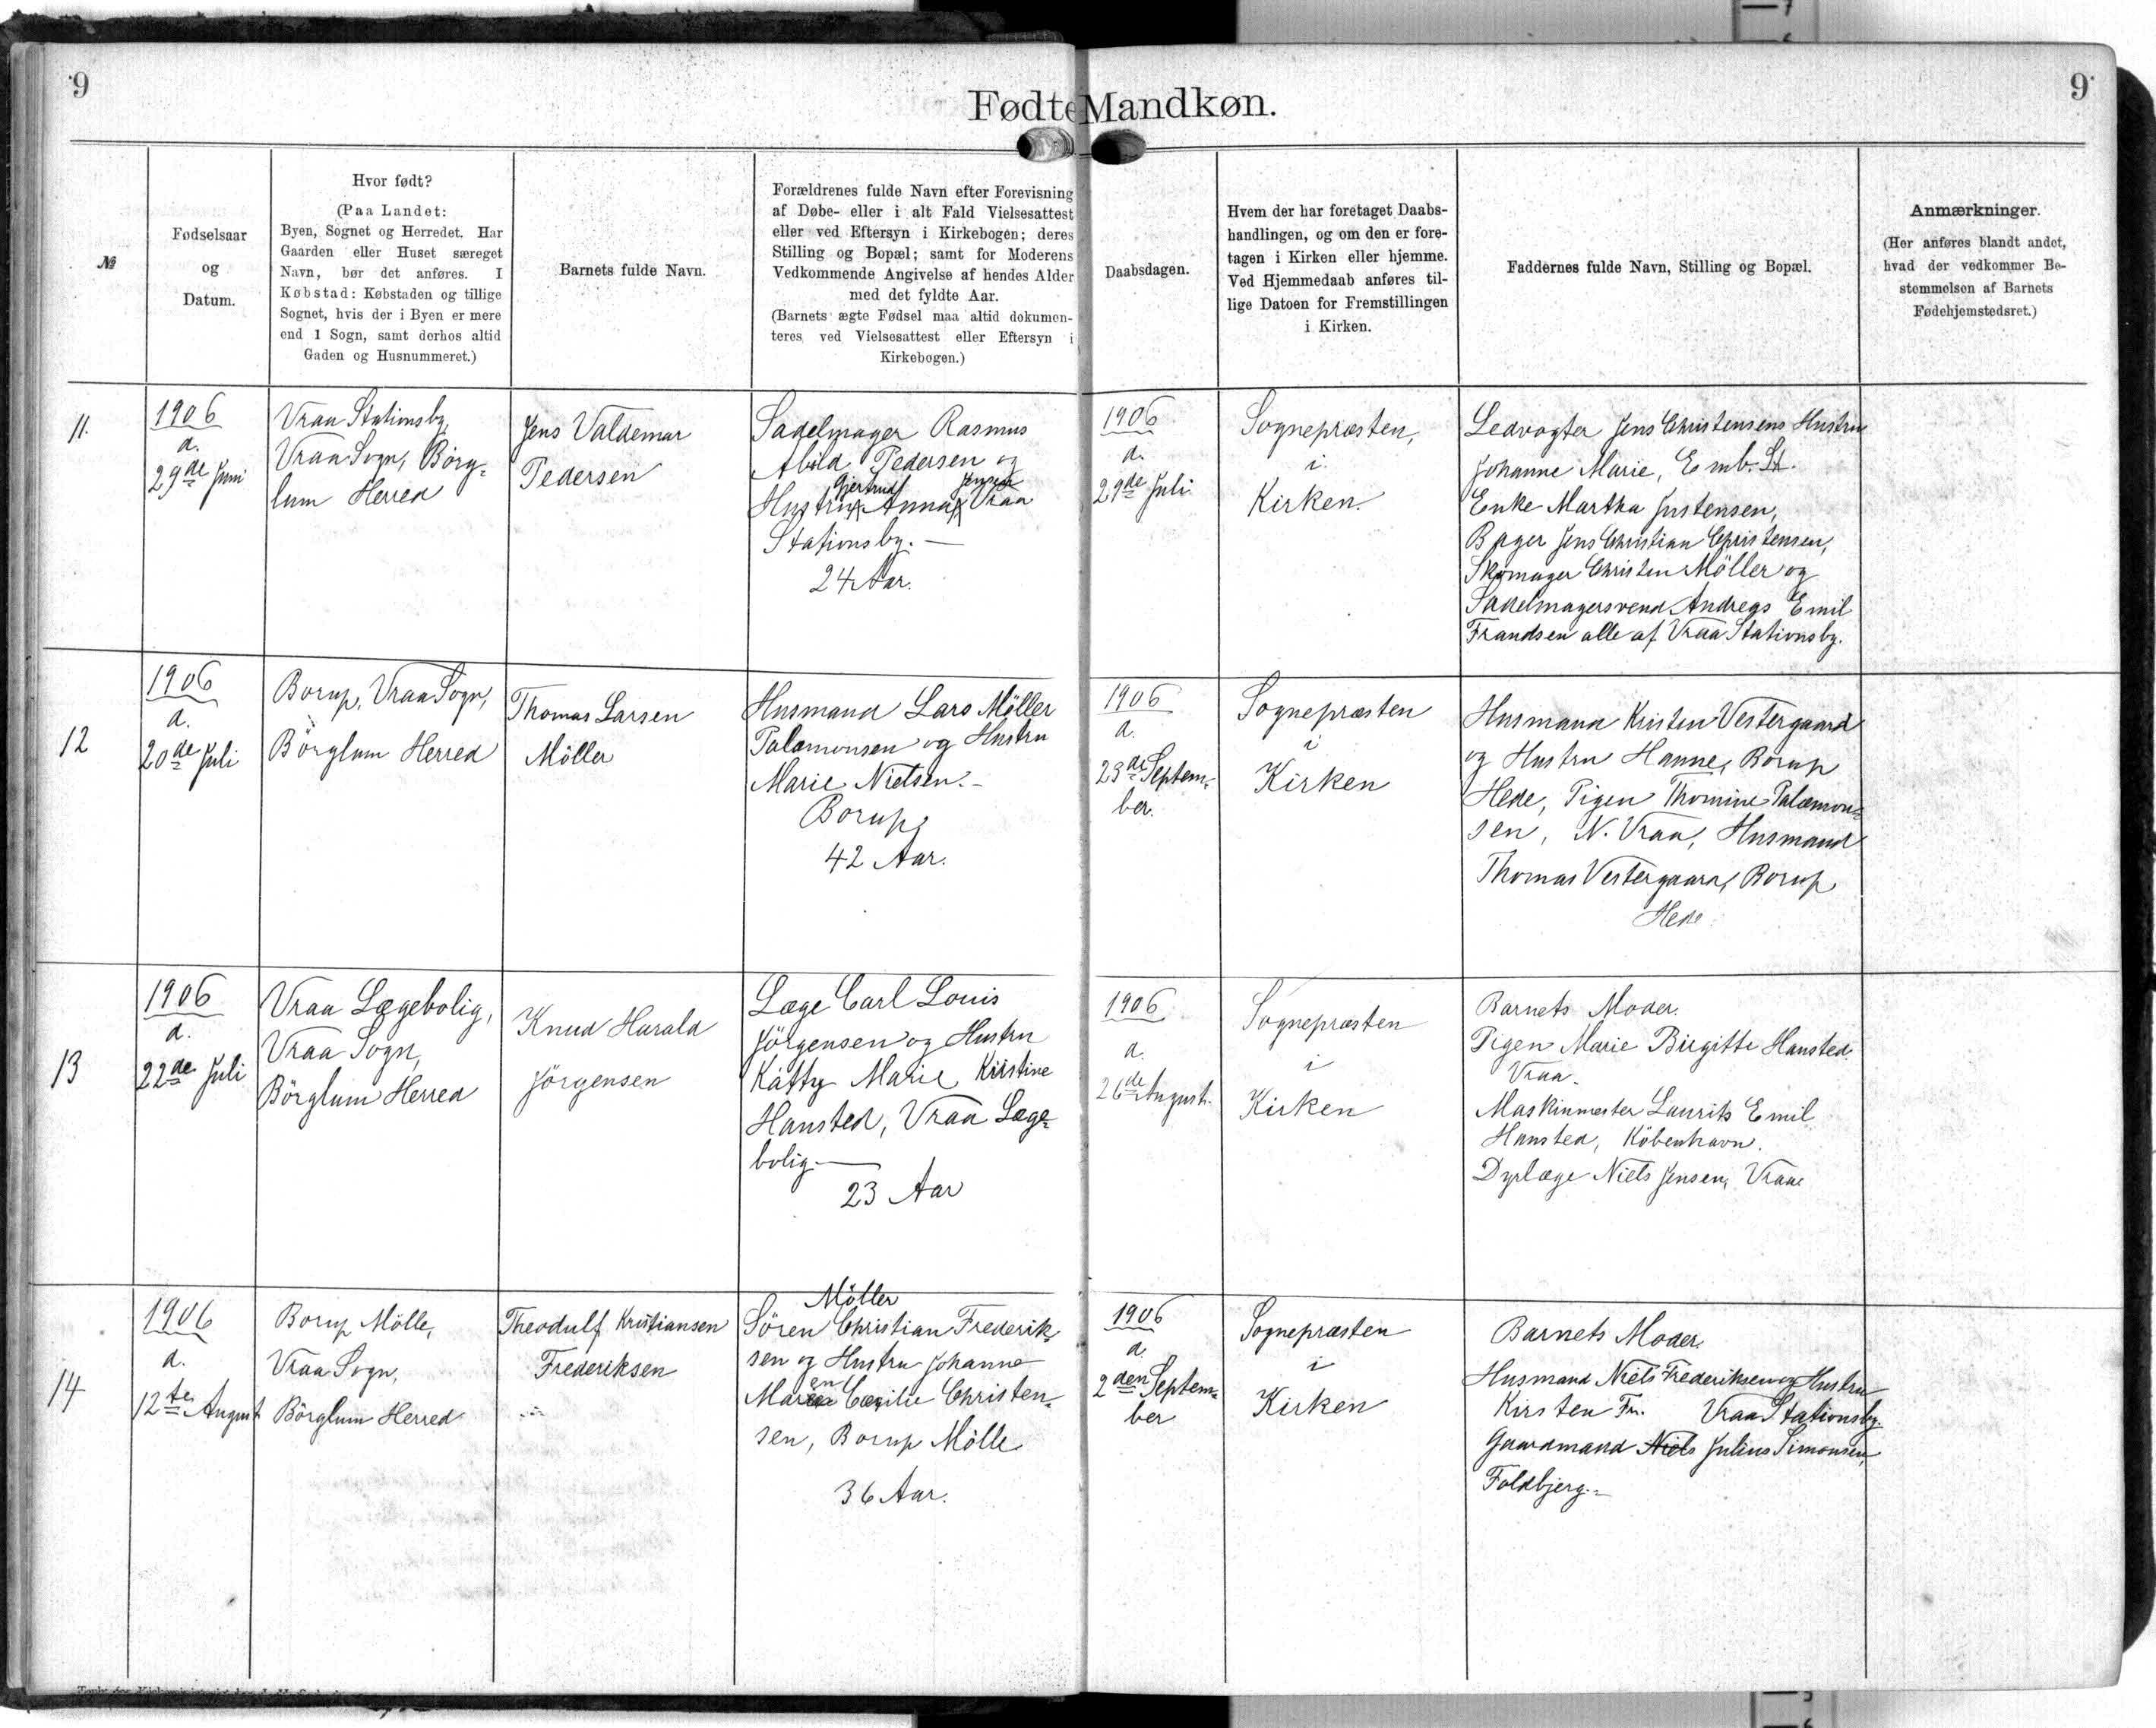 9
9
Fødte Mandkøn.
№
Fødselsaar
og
Datum.
Hvor født?
(Paa Landet:
Byen, Sognet og Herredet. Har
Gaarden eller Huset særeget
Navn, bør det anføres. I
Købstad: Købstaden og tillige
Sognet, hvis der i Byen er mere
end 1 Sogn, samt derhos altid
Gaden og Husnummeret.)
Barnets fulde Navn.
Forældrenes fulde Navn efter Forevisning
af Døbe- eller i alt Fald Vielsesattest
eller ved Eftersyn i Kirkebogen; deres
Stilling og Bopæl; samt for Moderens
Vedkommende Angivelse af hendes Alder
med det fyldte Aar.
(Barnets ægte Fødsel maa altid dokumen-
teres ved Vielsesattest eller Eftersyn i
Kirkebogen.)
Daabsdagen.
Hvem der har foretaget Daabs-
handlingen, og om den er fore-
tagen i Kirken eller hjemme.
Ved Hjemmedaab anføres til-
lige Datoen for Fremstillingen
i Kirken.
Faddernes fulde Navn, Stilling og Bopæl.
Anmærkninger.
(Her anføres blandt andet,
hvad der vedkommer Be-
stemmelsen af Barnets
Fødehjemstedsret.)
11.
1906
d.
29de Juni
Vraa Stationsby,
Vraa Sogn, Börg-
lum Herred
Jens Valdemar
Pedersen
Sadelmager Rasmus
Abild Pedersen og
Gjertrud Jensen
Hustru Anna Vraa
Stationsby. —
24 Aar.
1906
d.
29de Juli
Sognepræsten,
i
Kirken.
Ledvogter Jens Christensens Hustru
Johanne Marie, Emb. St.
Enke Martha Justensen,
Bager Jens Christian Christensen,
Skomager Christen Möller og
Sadelmagersvend Andreas Emil
Frandsen alle af Vraa Stationsby.
12
1906
d.
20de Juli
Borup, Vraa Sogn,
Börglum Herred
Thomas Larsen
Möller
Husmand Lars Möller
Palæmonsen og Hustru
Marie Nielsen. -
Borup,
42 Aar.
1906
d.
23de Septem-
ber.
Sognepræsten
i
Kirken
Husmand Kristen Vestergaard
og Hustru Hanne, Borup
Hede, Pigen Thomine Palæmon-
sen, N. Vraa, Husmand
Thomas Vestergaard, Borup
Hede
13
1906
d.
22de Juli
Vraa Lægebolig,
Vraa Sogn,
Börglum Herred
Knud Harald
Jörgensen
Læge Carl Louis
Jörgensen og Hustru
Katty Marie Kirstine
Hansted, Vraa Læge-
bolig. —
23 Aar
1906
d.
26de August.
Sognepræsten
i
Kirken
Barnets Moder.
Pigen Marie Birgitte Hansted.
Vraa.
Maskinmester Laurits Emil
Hansted, Köbenhavn.
Dyrlæge Niels Jensen, Vraa
14
1906
d.
12te August
Borup Mölle,
Vraa Sogn,
Börglum Herred
Theodulf Kristiansen
Frederiksen
Möller
Sören Christian Frederik-
sen og Hustru Johanne
Maren Cæcilie Christen-
sen, Borup Mölle
36 Aar.
1906
d.
2den Septem-
ber
Sognepræsten
i
Kirken
Barnets Moder.
Husmand Niels Frederiksen og Hustru
Kirsten Fr. Vraa Stationsby.
Gaardmand Niels Julius Simonsen,
Foldbjerg. -